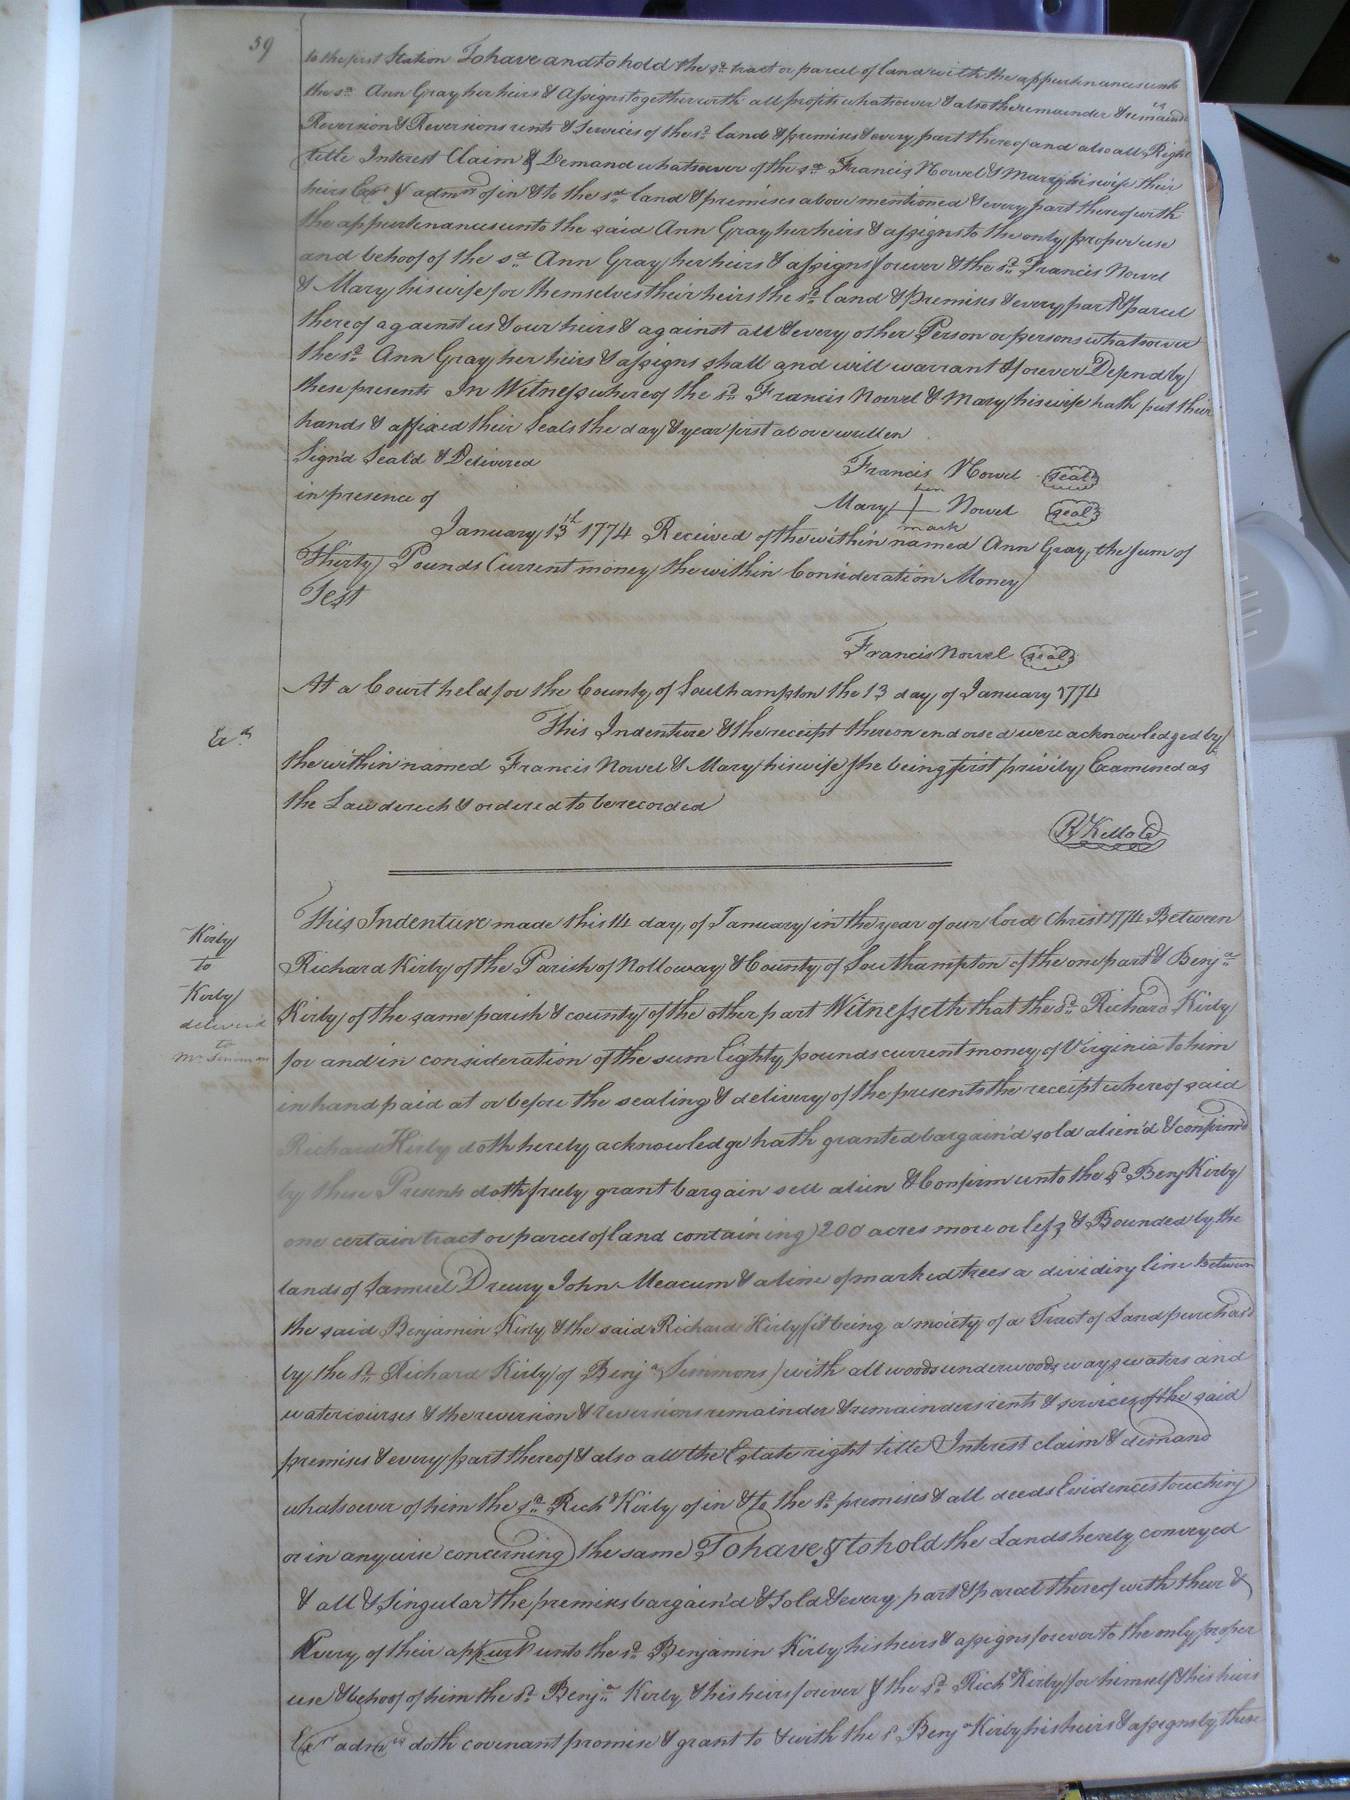 59
to the first Station To have and to hold the sd. tract or parcel of land with the appurtenances unto
the sd. Ann Gray her heirs & assigns together with all profits whatsoever & also the remainder & remainders
Reversion & Reversions rents & Services of the sd. land & premises & every part thereof and also all Right
title Interest Claim & Demand whatsoever of the sd. Francis Nowel & Mary his wife their
heirs Exrs. & admrs. of in & to the sd. land & premises above mentioned & every part thereof with
the appurtenances unto the said Ann Gray her heirs & assigns to the only proper use
and behoof of the sd. Ann Gray her heirs & assigns forever & the sd. Francis Nowel
& Mary his wife for themselves their heirs the sd. land & premises & every part & parcel
thereof against us & our heirs & against all & every other Person or persons whatsoever
the sd. Ann Gray her heirs & assigns shall and will warrant & forever Defend by
these presents In Witness whereof the sd. Francis Nowel & Mary his wife hath put their
hands & affixed their Seals the day & year first above written
Sign'd Seal'd & Delivered
in presence of
Francis Nowel seal
her
Mary + Nowel seal
mark
January 13th 1774 Received of the within named Ann Gray the Sum of
Thirty Pounds Current money the within Consideration Money
Test
Francis Nowel seal
At a Court held for the County of Southampton the 13 day of January 1774
This Indenture & the receipt thereon endorsed were acknowledged by
Exd
the within named Francis Nowel & Mary his wife she being first privily Examined as
the Law derects & ordered to be recorded
R Kello C
This Indenture made this 14 day of January in the year of our lord Christ 1774 Between
Kirby
to
Kirby
delivered
to
Mr Simmons
Richard Kirby of the Parish of Nolloway & County of Southampton of the one part & Benja.
Kirby of the same parish & county of the other part Witnesseth that the sd. Richard Kirby
for and in consideration of the sum Eighty pounds current money of Virginia to him
in hand paid at or before the sealing & delivery of the presents the receipt whereof said
Richard Kirby doth hereby acknowledge hath granted bargain'd sold alien'd & confirm'd
by these Presents doth freely grant bargain sell alien & Confirm unto the sd Benj Kirby
one certain tract or parcel of land containing 200 acres more or less & Bounded by the
lands of Samuel Drewry John Meacum & a line of marked trees a dividing line between
the said Benjamin Kirby & the said Richard Kirby (it being a moiety of a Tract of Land purchas'd
by the sd. Richard Kirby of Benja Simmons) with all woods underwoods ways waters and
watercourses & the reversion & reversions remainder & remainders rents & services of the said
premises & every part thereof & also all the Estate right title Interest claim & demand
whatsoever of him the sd. Richd Kirby of in & to the sd. premises & all deeds Evidences touching
or in anywise concerning the same To have & to hold the Lands hereby conveyed
& all & Singular the premises bargain'd & Sold & every part & parcel thereof with their &
Every of their appurts unto the sd. Benjamin Kirby his heirs & assigns forever to the only proper
use & behoof of him the sd. Benja. Kirby & his heirs forever & the sd. Richd Kirby for himself & his heirs
Exrs admrs doth covenant promise & grant to & with the sd Benja Kirby his heirs & assigns by these